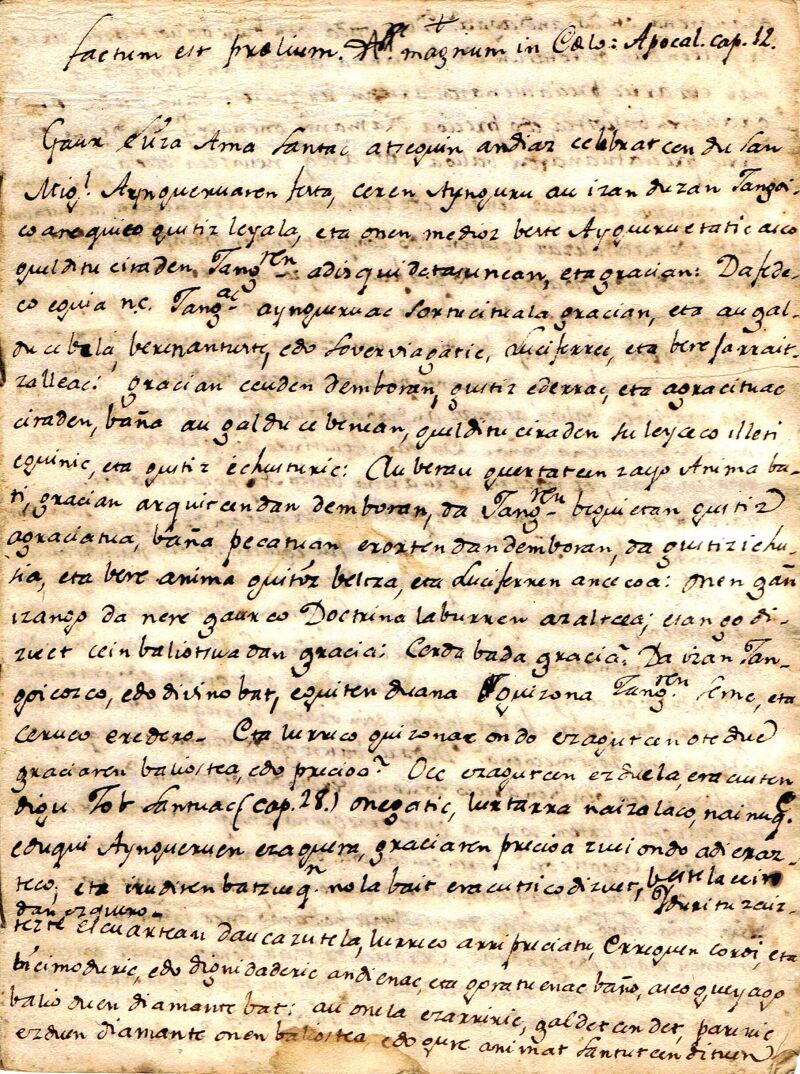 +
factum est prælium. magnum in Cælo: Apocal. cap. 12.
Gaur Eliza Ama Santac atseguin andiaz celebratcen du San
Mig.l Aynguervaren festa, ceren Aynguru au izan duzan Tangoi-
coarequico guztiz leyala, eta onen medioz beste Ayguru etatic asco
guelditu ciraden Tang.ren adisquidetasunean, eta gracian: Da fede-
co eguia n.c. Tang.ac aynguervac sortu cituala gracian, eta au gal-
du cebala, berenanturte, edo soverviagatic, Luciferrec, eta bere sarrait-
zalleac: gracian ceuden demboran, guztiz ederrac, eta agracituac
ciraden, baña au galdu cebenean, guelditu ciraden su leyceco illeti
eguinic, eta guztiz ichusturic: Au berau guertatcen zayo Anima ba-
ti, gracian arquitcen dan demboran, da Tang.ren beguietan guztiz
agraciatua, baña pecatuan erortendan demboran, da guztiz ichu-
sia, eta bere anima guitéz beltza, eta Luciferren ancecoa: onen gañ
izango da nere gaurco Doctrina laburren azaltcea; esango di-
zuet cein baliotsua dan gracia: Cer da bada gracia? Da izan Tan-
goicozco, edo divino bat, eguiten duana guizona Tang.ren seme, eta
Ceruco eredero. Eta lurreco guizonac ondo ezagutcen ote due
graciaren baliostea, edo precioa? Oec ezagutcen ez duela, eracusten
digu Tob Santuac (cap. 28.) onegatic, lurtarra naizalaco, nai nuq.e
eduqui Ayngueruen ezaguera, graciaren precioa zuei ondo adieraz-
teco; eta iruditen batzueq.n nola bait eracutsico dizuet, beste la ecin
dan ezquero. Iduritu zaiz-
tezte escuartean daucazutela, lurreco arri preciatu, Erreguen coroi, eta
bicimoduric, edo dignidaderic andienac, eta goratuenac baño, asco gueyago
balio duen diamante bat: au onela ezarriric, galdetcen det, pareric
ez duen diamante onen baliostea, edo gure animac santutcen dituen